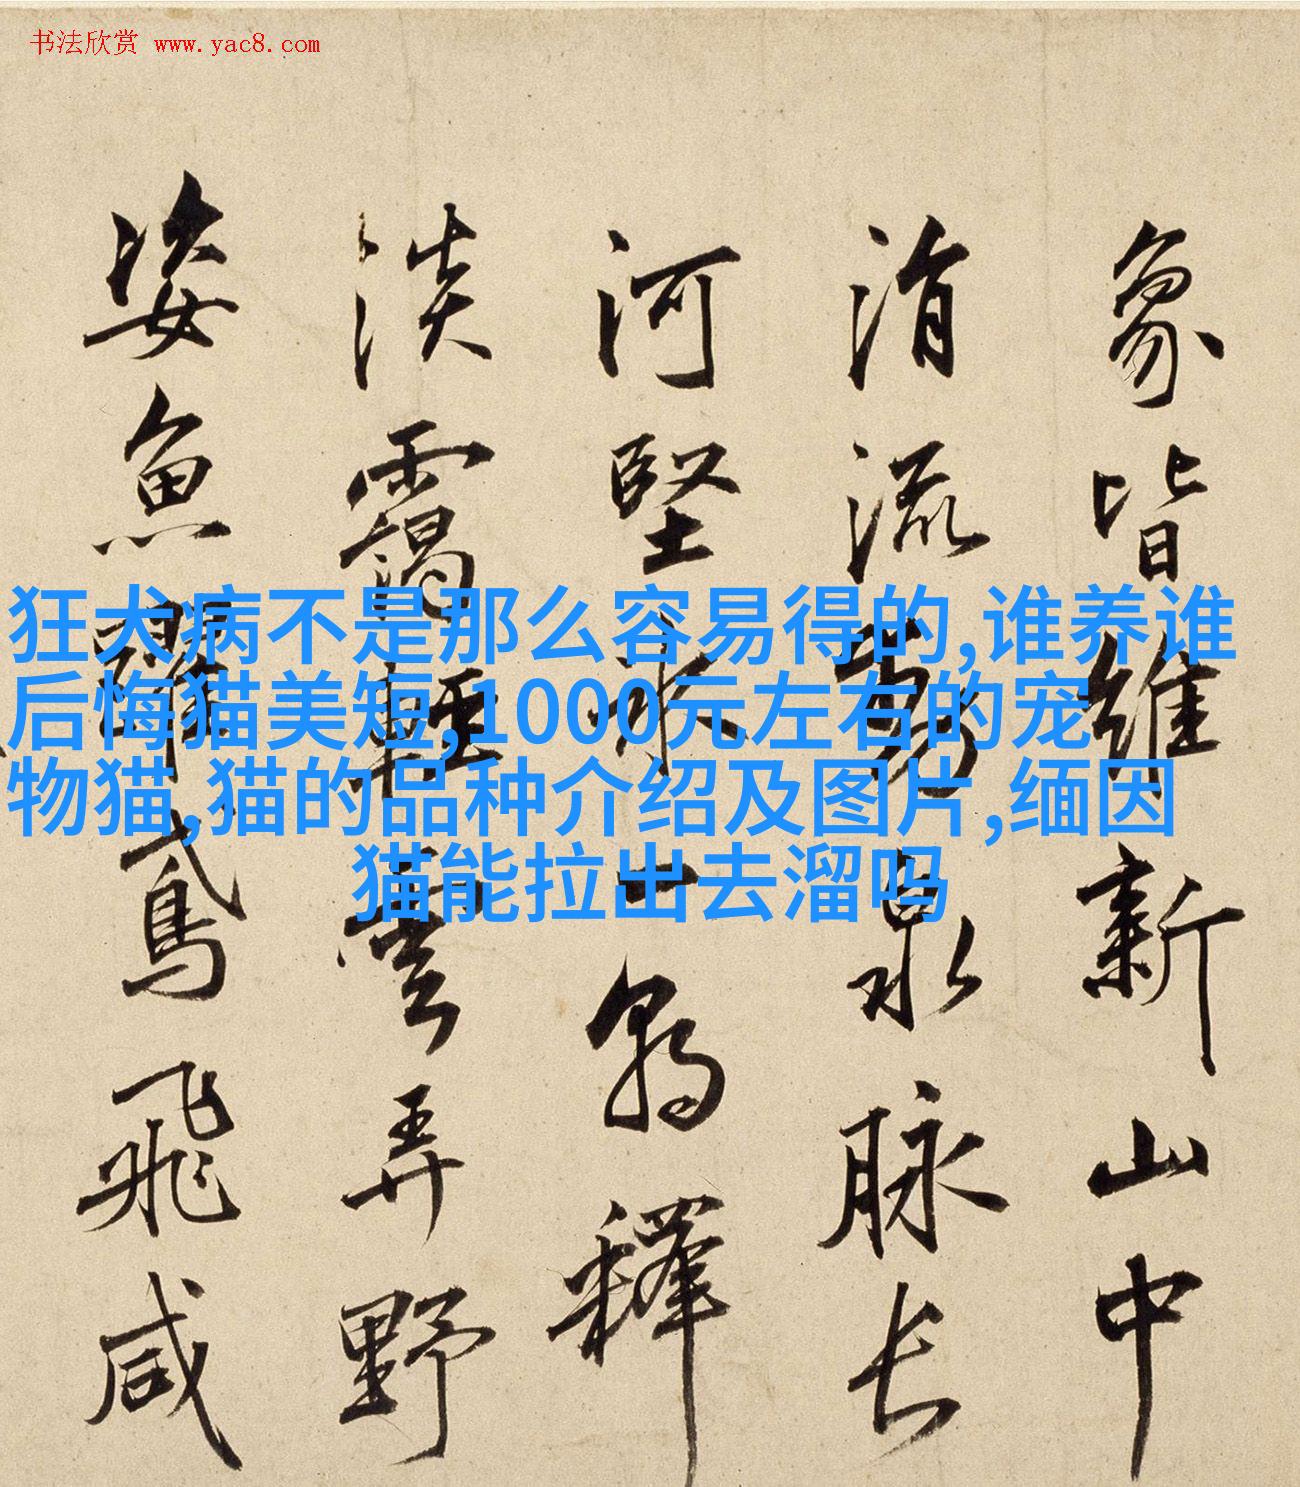 书法欣赏 www.yac8.com
象皆維新山中
涓流泉脉長
河堅冰一朝釋
淡靄輕雲弄野
姿魚躍鳶飛咸
狂犬病不是那么容易得的,谁养谁
后悔猫美短,1000元左右的宠
物猫,猫的品种介绍及图片,缅因
猫能拉出去溜吗